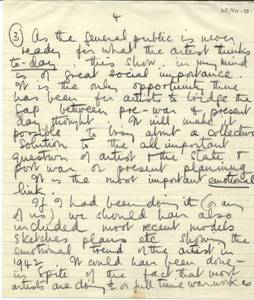 4
③ As the general public is never
ready for what the artist thinks
to-day - this show in my mind
is of great social importance.
It is the only opportunity there
has been for artists to bridge the
gap between pre-war & present
day thought. It will make it
possible to bring about a collective
solution to the all important
question of artist & the State, &
post war or present planning
It is the most important emotional
link.
If I had been doing it (or any
of us) we should have also
included most recent models
sketches plans etc showing the
emotional trend of the artist in
1942. It could have been done -
in spite of the fact that most
artists are doing ½ or full time war work as